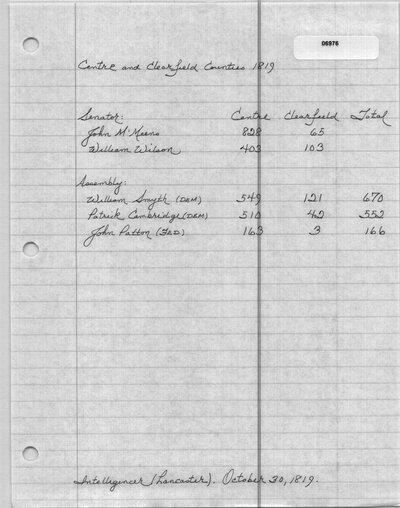 06976
Centre and Clearfield Counties 1819
Senator: Centre Clearfield Total
John M'Meens 828 65
William Wilson 403 103
Assembly:
William Smyth (DEM) 549 121 670
Patrick Cambridge (DEM) 510 42 552
John Patton (FED) 163 3 166
Intelligencer (Lancaster). October 30, 1819.